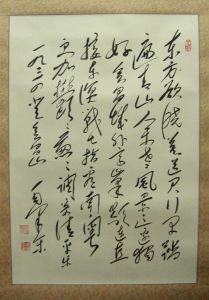 东方欲晓莫道君行早踏
遍青山人未老风景这边独
好会昌城外高峰颠连直
接东溟战士指看南粤
更加郁郁葱葱调寄清平乐
一九三四登会昌山 毛泽东